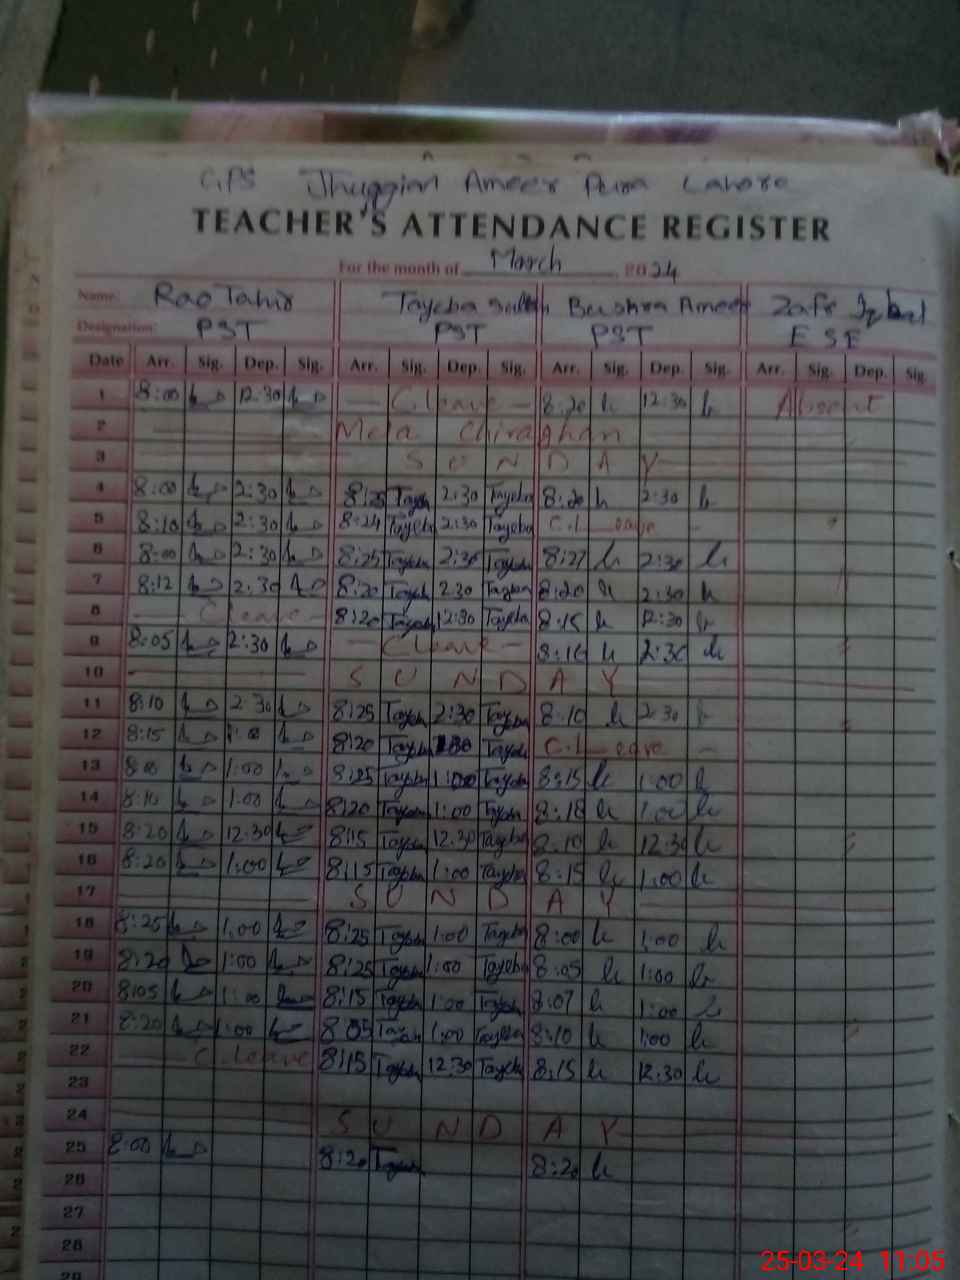 GPS Jhuggian Ameer Pura Lahore
TEACHER'S ATTENDANCE REGISTER
For the month of March 2024
Name: Rao Tahir Tayeba Bushra Ameer
Designation: PST PST PST ESE
Date Arr. Sig. Dep. Sig. Arr. Sig. Dep. Sig. Arr. Sig. Dep. Sig. Arr. Sig. Dep. Sig.
1 8:00 12:30 C.leave 8:20 12:30 Absent
2 Mela Chiraghan
3 SUNDAY
4 8:00 2:30 8:25 Tayeba 2:30 Tayeba 8:20 2:30
5 8:10 2:30 8:24 Tayeba 2:30 Tayeba C.Leave
6 8:00 2:30 8:25 Tayeba 2:30 Tayeba 8:27 2:30
7 8:12 2:30 8:20 Tayeba 2:30 Tayeba 8:20 2:30
8 C leave 8:20 Tayeba 12:30 Tayeba 8:15 12:30
9 8:05 2:30 C leave 8:16 2:30
10 SUNDAY
11 8:10 2:30 8:25 Tayeba 2:30 Tayeba 8:10 2:30
12 8:15 8:20 Tayeba Tayeba C.Leave
13 8:00 1:00 8:25 Tayeba 1:00 Tayeba 8:15 1:00
14 8:10 1:00 8:20 Tayeba 1:00 Tayeba 8:18 1:00
15 8:20 12:30 8:15 Tayeba 12:30 Tayeba 8:10 12:30
16 8:20 1:00 8:15 Tayeba 1:00 Tayeba 8:15 1:00
17 SUNDAY
18 8:25 1:00 8:25 Tayeba 1:00 Tayeba 8:00 1:00
19 8:20 1:00 8:25 Tayeba 1:00 Tayeba 8:05 1:00
20 8:05 1:00 8:15 Tayeba 1:00 Tayeba 8:07 1:00
21 8:20 1:00 8:05 Tayeba 1:00 Tayeba 8:10 1:00
22 C.leave 8:15 Tayeba 12:30 Tayeba 8:15 12:30
23
24 SUNDAY
25 8:00 8:20 Tayeba 8:20
26
27
28
29
25-03-24 11:05